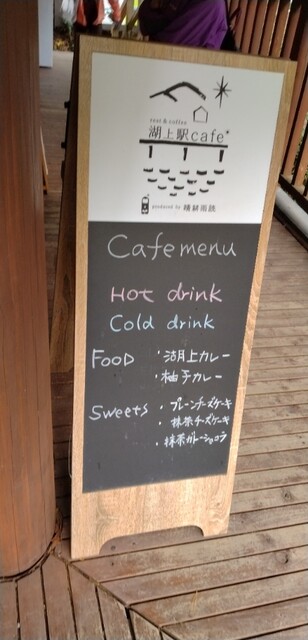 rest & coffee
湖上駅cafe*
produced by 晴耕雨読
Cafe menu
Hot drink
Cold drink
Food ・湖上カレー
・柚子カレー
Sweets ・プレーンチーズケーキ
・抹茶チーズケーキ
・抹茶ガトーショコラ